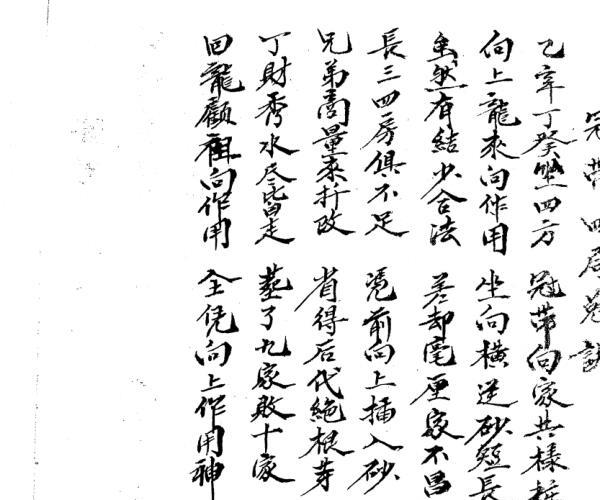 冠帶四局訣
乙辛丁癸坐四方 冠帶向家共樣
向上龍來向作用 坐向橫逆砂短長
虽然有結少合法 差却毫厘家不昌
長三四房俱不足 凴前向上插入砂
兄弟商量來拆改 省得后代絕根芽
丁財秀水尽皆走 塟了九家敗十家
回龍顧祖向作用 全凭向上作用神